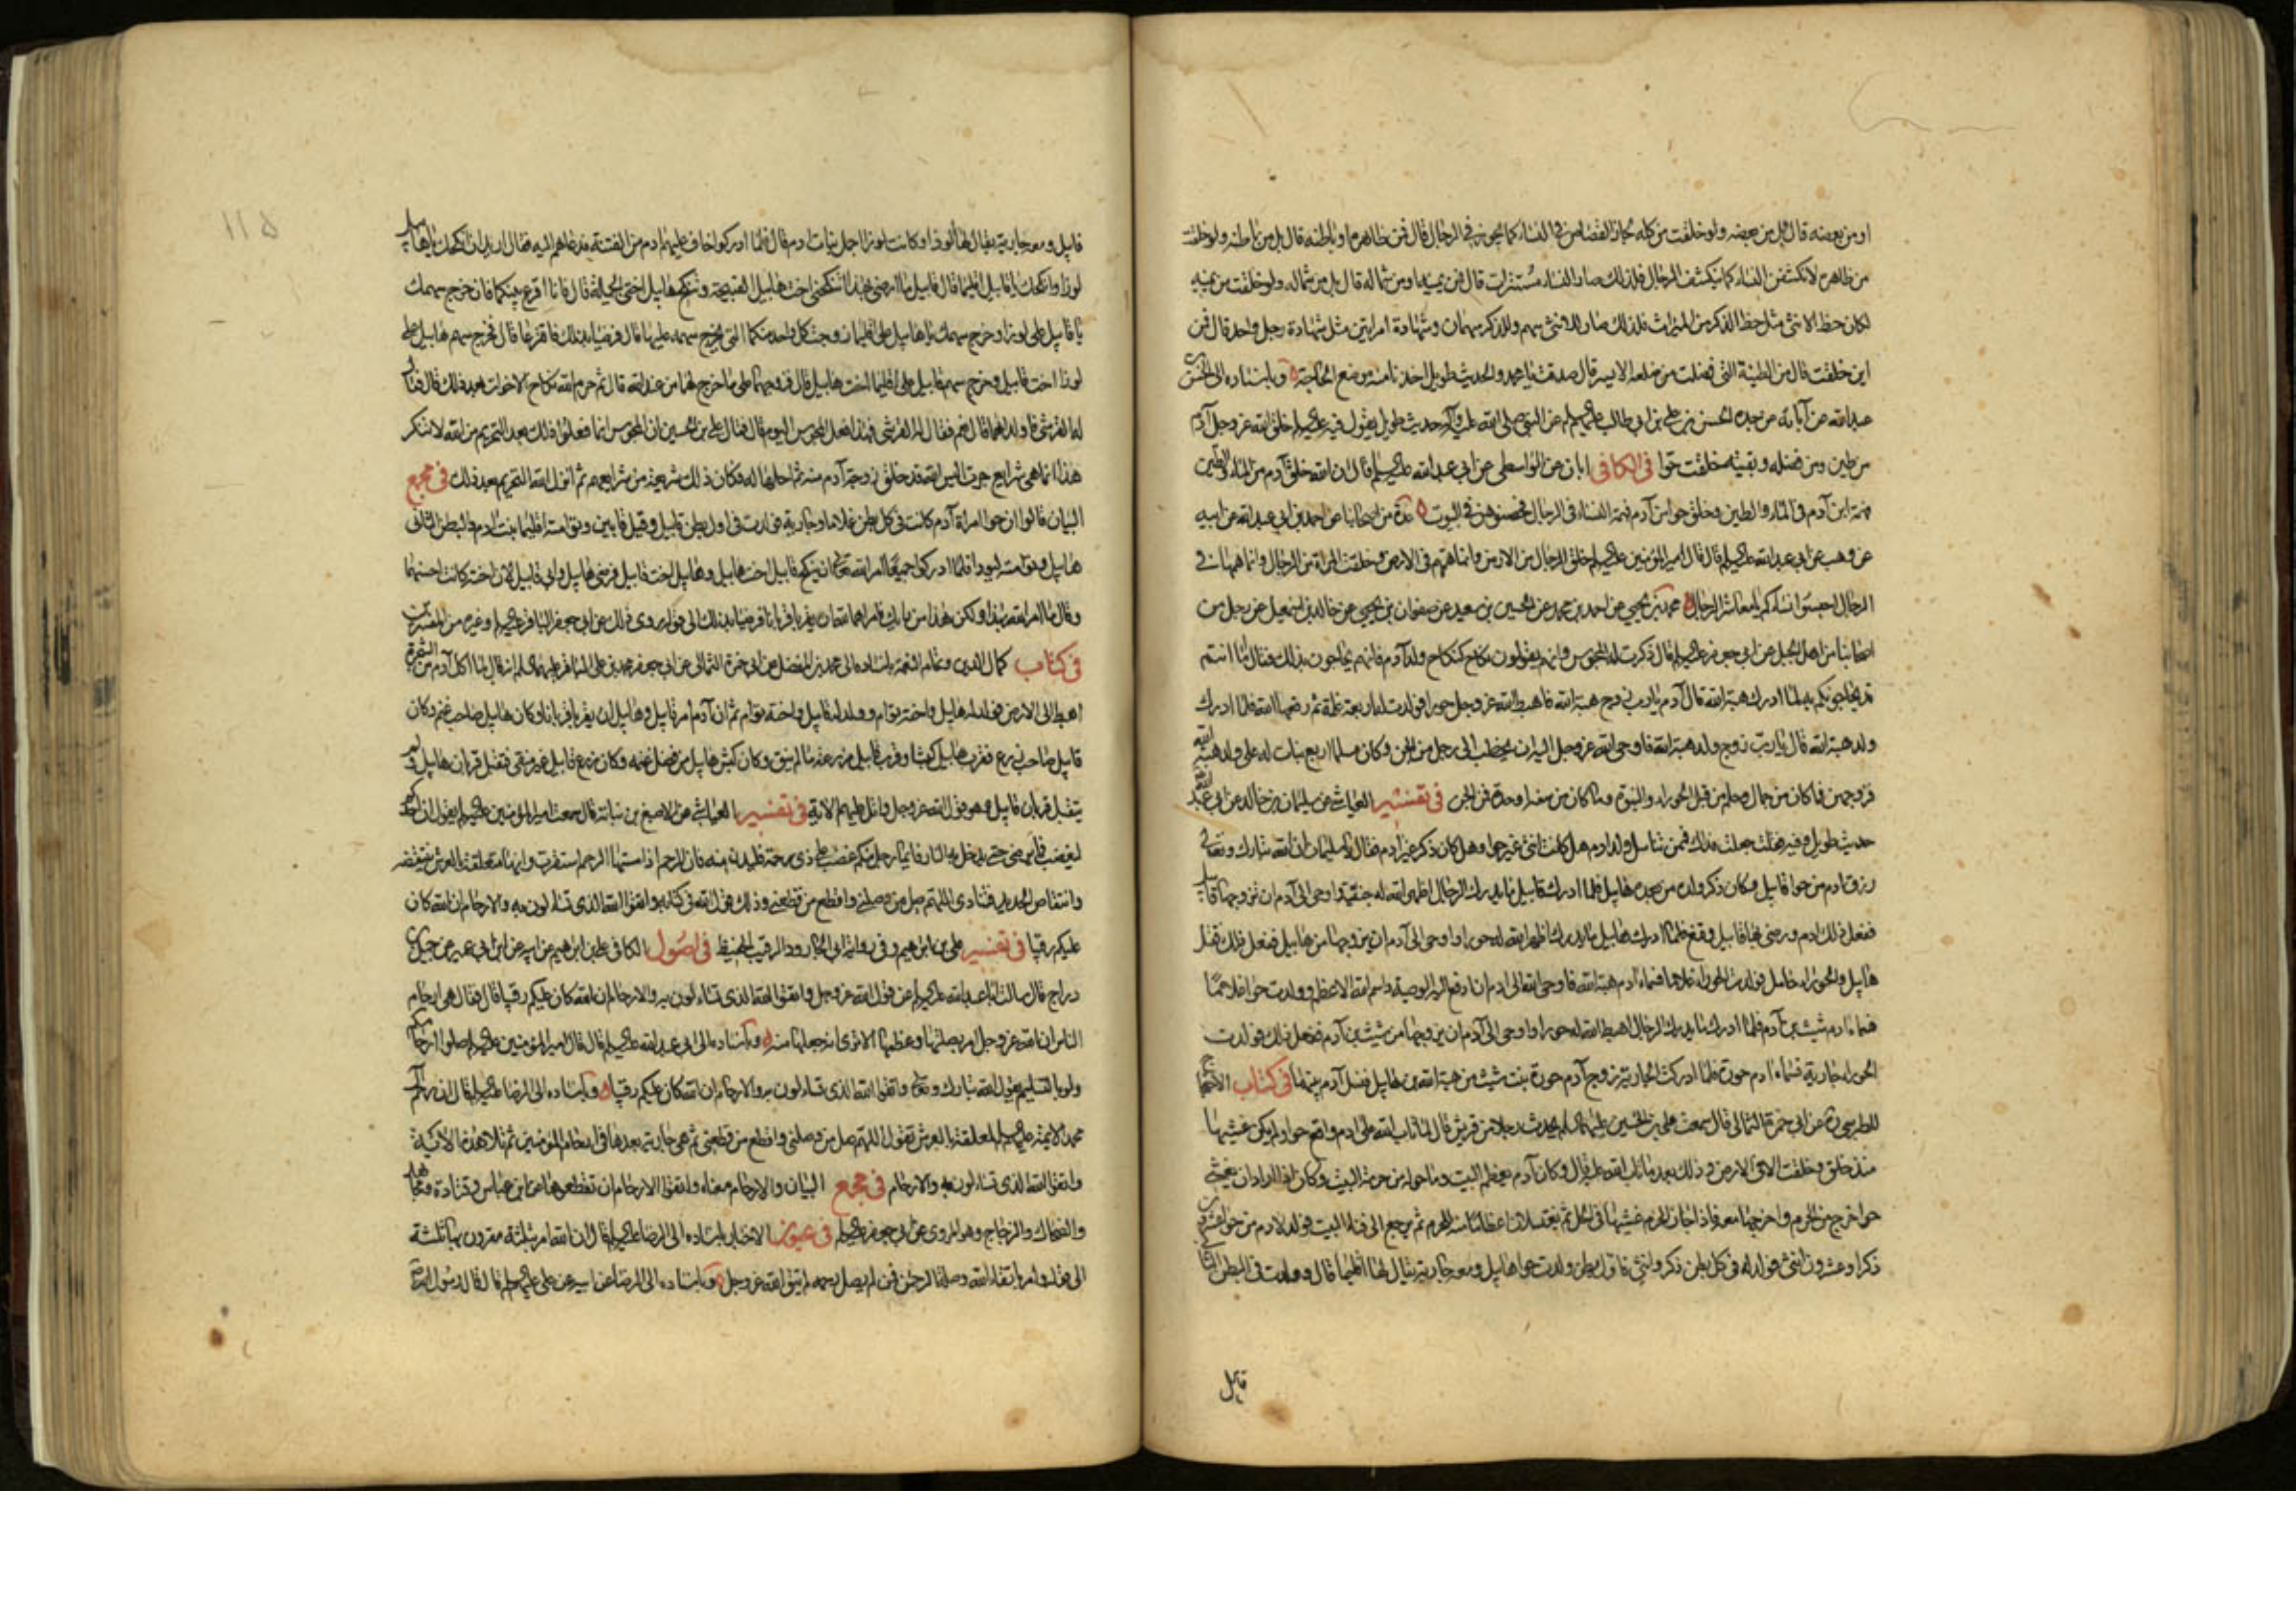 او من بعضه قال بل من بعضه ولو خلقت من كله لجاز القصاص في النساء كما يجوز في الرجال قال فمن ظاهره او باطنه قال بل من باطنه ولو خلقت
من ظاهره لانكشفن النساء كما ينكشف الرجال فلذلك صار النساء مستترات قال فمن يمينه او من شماله قال بل من شماله ولو خلقت من يمينه
لكان حظ الانثى مثل حظ الذكر من الميراث فلذلك صار للانثى سهم وللذكر سهمان وشهادة امراتين مثل شهادة رجل واحد قال فمن
اين خلقت قال من الطينة التي فضلت من ضلعه الايسر قال صدقت يا محمد والحديث طويل اخذنا منه موضع الحاجة وباسناده الى الحسن بن
عبد الله عن آبائه عن جده الحسن بن علي بن ابي طالب عليهم السلم عن النبي صلى الله عليه وآله حديث طويل يقول فيه عليه السلم خلق الله عز وجل آدم
من طين ومن فضله وبقيته خلقت حوا في الكافي ابان عن الواسطي عن ابي عبد الله عليه السلم قال ان الله خلق آدم من الماء والطين
فهمة ابن آدم في الماء والطين وخلق حوا من آدم فهمة النساء في الرجال فحصنوهن في البيوت عدة من اصحابنا عن احمد بن ابي عبد الله عن ابيه
عن وهب عن ابي عبد الله عليه السلم قال قال امير المؤمنين عليه السلم خلق الرجال من الارض وانما همهم في الارض وخلقت المراة من الرجال وانما همها في
الرجال احبسوا نساءكم يا معاشر الرجال محمد بن يحيى عن احمد بن محمد عن الحسين بن سعيد عن صفوان بن يحيى عن خالد بن اسمعيل عن رجل من
اصحابنا من اهل الجبل عن ابي جعفر عليه السلم قال ذكرت له المجوس وانهم يقولون نكاح كنكاح ولد آدم فانهم يحاجون بذلك فقال اما انتم
فلا يحاجونكم به لما ادرك هبة الله قال آدم يا رب زوج هبة الله فاهبط الله عز وجل حورا فولدت له اربعة غلمة ثم رفعها الله فلما ادرك
ولد هبة الله قال يا رب زوج ولد هبة الله فاوحى الله عز وجل اليه ان يخطب الى رجل من الجن وكان مسلما اربع بنات له على ولد هبة الله
فزوجهن فما كان من جمال وحلم فمن قبل الحوراء والنبوة وما كان من سفه او حدة فمن الجن في تفسير العياشي عن سليمان بن خالد عن ابي عبد الله
حديث طويل وفيه قلت جعلت فداك فممن تناسل ولد ادم هل كانت انثى غير حوا وهل كان ذكر غير ادم فقال يا سليمان ان الله تبارك وتعالى
رزق ادم من حوا قابيل وكان ذكر ولده من بعده هابيل فلما ادرك قابيل ما يدرك الرجال اظهر الله له جنية واوحى الى آدم ان تزوجها قابيل
ففعل ذلك ادم ورضي بها قابيل وقنع فلما ادرك هابيل ما يدرك اظهر الله له حورا واوحى الى آدم ان يزوجها من هابيل ففعل ذلك فقتل
هابيل والحوراء حامل فولدت الحوراء غلاما فسماه ادم هبة الله فاوحى الله الى ادم ان ادفع اليه الوصية واسم الله الاعظم وولدت حوا غلاما
فسماه ادم شيث بن آدم فلما ادرك ما يدرك الرجال اهبط الله له حورا واوحى الى آدم ان يزوجها من شيث بن آدم ففعل ذلك فولدت
الحوراء جارية فسماه ادم حورة فلما ادركت الجارية زوج آدم حورة بنت شيث من هبة الله بن هابيل فنسل آدم منهما في كتاب الاحتجاج
للطبرسي ره عن ابي حمزة الثمالي قال سمعت علي بن الحسين عليهما السلم يحدث رجلا من قريش قال لما تاب الله على ادم واقع حوا ولم يكن غشيها
منذ خلق وخلقت الا في الارض وذلك بعد ما تاب الله عليه قال وكان آدم يعظم البيت وما حوله من حرمة البيت وكان اذا اراد ان يغشى
حوا خرج من الحرم واخرجها معه فاذا جاز الحرم غشيها في الحل ثم يغتسلان اعظاما منه للحرم ثم يرجع الى فناء البيت فولد لادم من حوا عشرون
ذكرا وعشرون انثى فولد له في كل بطن ذكر وانثى فاول بطن ولدت حوا هابيل ومعه جارية يقال لها اقليما قال وولدت في البطن الثاني
قابيل
قابيل ومعه جارية يقال لها لوذا وكانت لوذا اجمل بنات ادم قال فلما ادركوا خاف عليهم ادم من الفتنة فدعاهم اليه فقال اريد ان انكحك يا هابيل
لوزا وانكحك يا قابيل اقليما قال قابيل ما ارضى بهذا اتنكحني اخت هابيل القبيحة وتنكح هابيل اختي الجميلة قال فانا اقرع بينكما فان خرج سهمك
يا قابيل على لوزا وخرج سهمك يا هابيل على اقليما زوجت كل واحد منكما التي يخرج سهمه عليها قال فرضيا بذلك فاقترعا قال فخرج سهم هابيل على
لوذا اخت قابيل وخرج سهم قابيل على اقليما اخت هابيل قال فزوجهما على ما خرج لهما من عند الله قال ثم حرم الله نكاح الاخوات بعد ذلك قال فقال
له القرشي فاولداهما قال نعم فقال له القرشي فهذا فعل المجوس اليوم قال فقال علي بن الحسين ان المجوس انما فعلوا ذلك بعد التحريم من الله لا تنكر
هذا انما هي شرايع جرت اليس الله قد خلق زوجة آدم منه ثم احلها له فكان ذلك شريعة من شرايعهم ثم انزل الله التحريم بعد ذلك في مجمع
البيان قالوا ان حوا امراة آدم كانت تلد في كل بطن غلاما وجارية فولدت في اول بطن قابيل وقيل قابين وتوامته اقليما بنت ادم والبطن الثاني
هابيل وتوامته ليوذا فلما ادركوا جميعا امر الله تعالى ان ينكح قابيل اخت هابيل وهابيل اخت قابيل فرضي هابيل وابى قابيل لان اخته كانت احسنهما
وقال ما امر الله بهذا ولكن هذا من رايك فامرهما الله ان يقربا قربانا فرضيا بذلك الى قوله روى ذلك عن ابي جعفر الباقر عليه السلم وغيره من المفسرين
في كتاب كمال الدين وتمام النعمة باسناده الى محمد بن الفضل عن ابي حمزة الثمالي عن ابي جعفر محمد بن علي الباقر عليهما السلم انه قال لما اكل آدم من الشجرة
اهبط الى الارض فولد له هابيل واخته توام وولد له قابيل واخته توام ثم ان آدم امر قابيل وهابيل ان يقربا قربانا وكان هابيل صاحب غنم وكان
قابيل صاحب زرع فقرب هابيل كبشا وقرب قابيل من زرعه ما لم ينق وكان كبش هابيل من فضل غنمه وكان زرع قابيل غير منقى فتقبل قربان هابيل ولم
يتقبل قربان قابيل وهو قول الله عز وجل واتل عليهم الآية في تفسير العياشي عن الاصبغ بن نباتة قال سمعت امير المؤمنين عليه السلم يقول ان احدكم
ليغضب فما يرضى حتى يدخل به النار فايما رجل منكم غضب على ذي رحمه فليدن منه فان الرحم اذا مستها الرحم استقرت وانها متعلقة بالعرش تنتقضه
وانتقاض الحديد فتنادي اللهم صل من وصلني واقطع من قطعني وذلك قول الله في كتابه واتقوا الله الذي تساءلون به والارحام ان الله كان
عليكم رقيبا في تفسير علي بن ابراهيم وفي رواية ابي الجارود الرقيب الحفيظ في اصول الكافي علي بن ابراهيم عن ابيه عن ابن ابي عمير عن جميل بن
دراج قال سالت ابا عبد الله عليه السلم عن قول الله عز وجل واتقوا الله الذي تساءلون به والارحام ان الله كان عليكم رقيبا قال فقال هي ارحام
الناس ان الله عز وجل امر بصلتها وعظمها الا ترى انه جعلها منه وباسناده الى ابي عبد الله عليه السلم قال قال امير المؤمنين عليه السلم صلوا ارحامكم
ولو بالتسليم يقول الله تبارك وتعالى واتقوا الله الذي تساءلون به والارحام ان الله كان عليكم رقيبا وباسناده الى الرضا عليه السلم قال ان رحم آل
محمد الائمة عليهم السلم لمعلقة بالعرش تقول اللهم صل من وصلني واقطع من قطعني ثم هي جارية بعدها في ارحام المؤمنين ثم تلا هذه الآية
واتقوا الله الذي تساءلون به والارحام في مجمع البيان والارحام معناه واتقوا الارحام ان تقطعوها عن ابن عباس وقتادة ومجاهد
والضحاك والزجاج وهو المروي عن ابي جعفر عليه السلم في عيون الاخبار باسناده الى الرضا عليه السلم قال ان الله امر بثلثة مقرون بها ثلثة
الى قوله وامر باتقاء الله وصلة الرحم فمن لم يصل رحمه لم يتق الله عز وجل وباسناده الى الرضا عن ابيه عن علي عليهم السلم قال قال رسول الله ص
١١٥